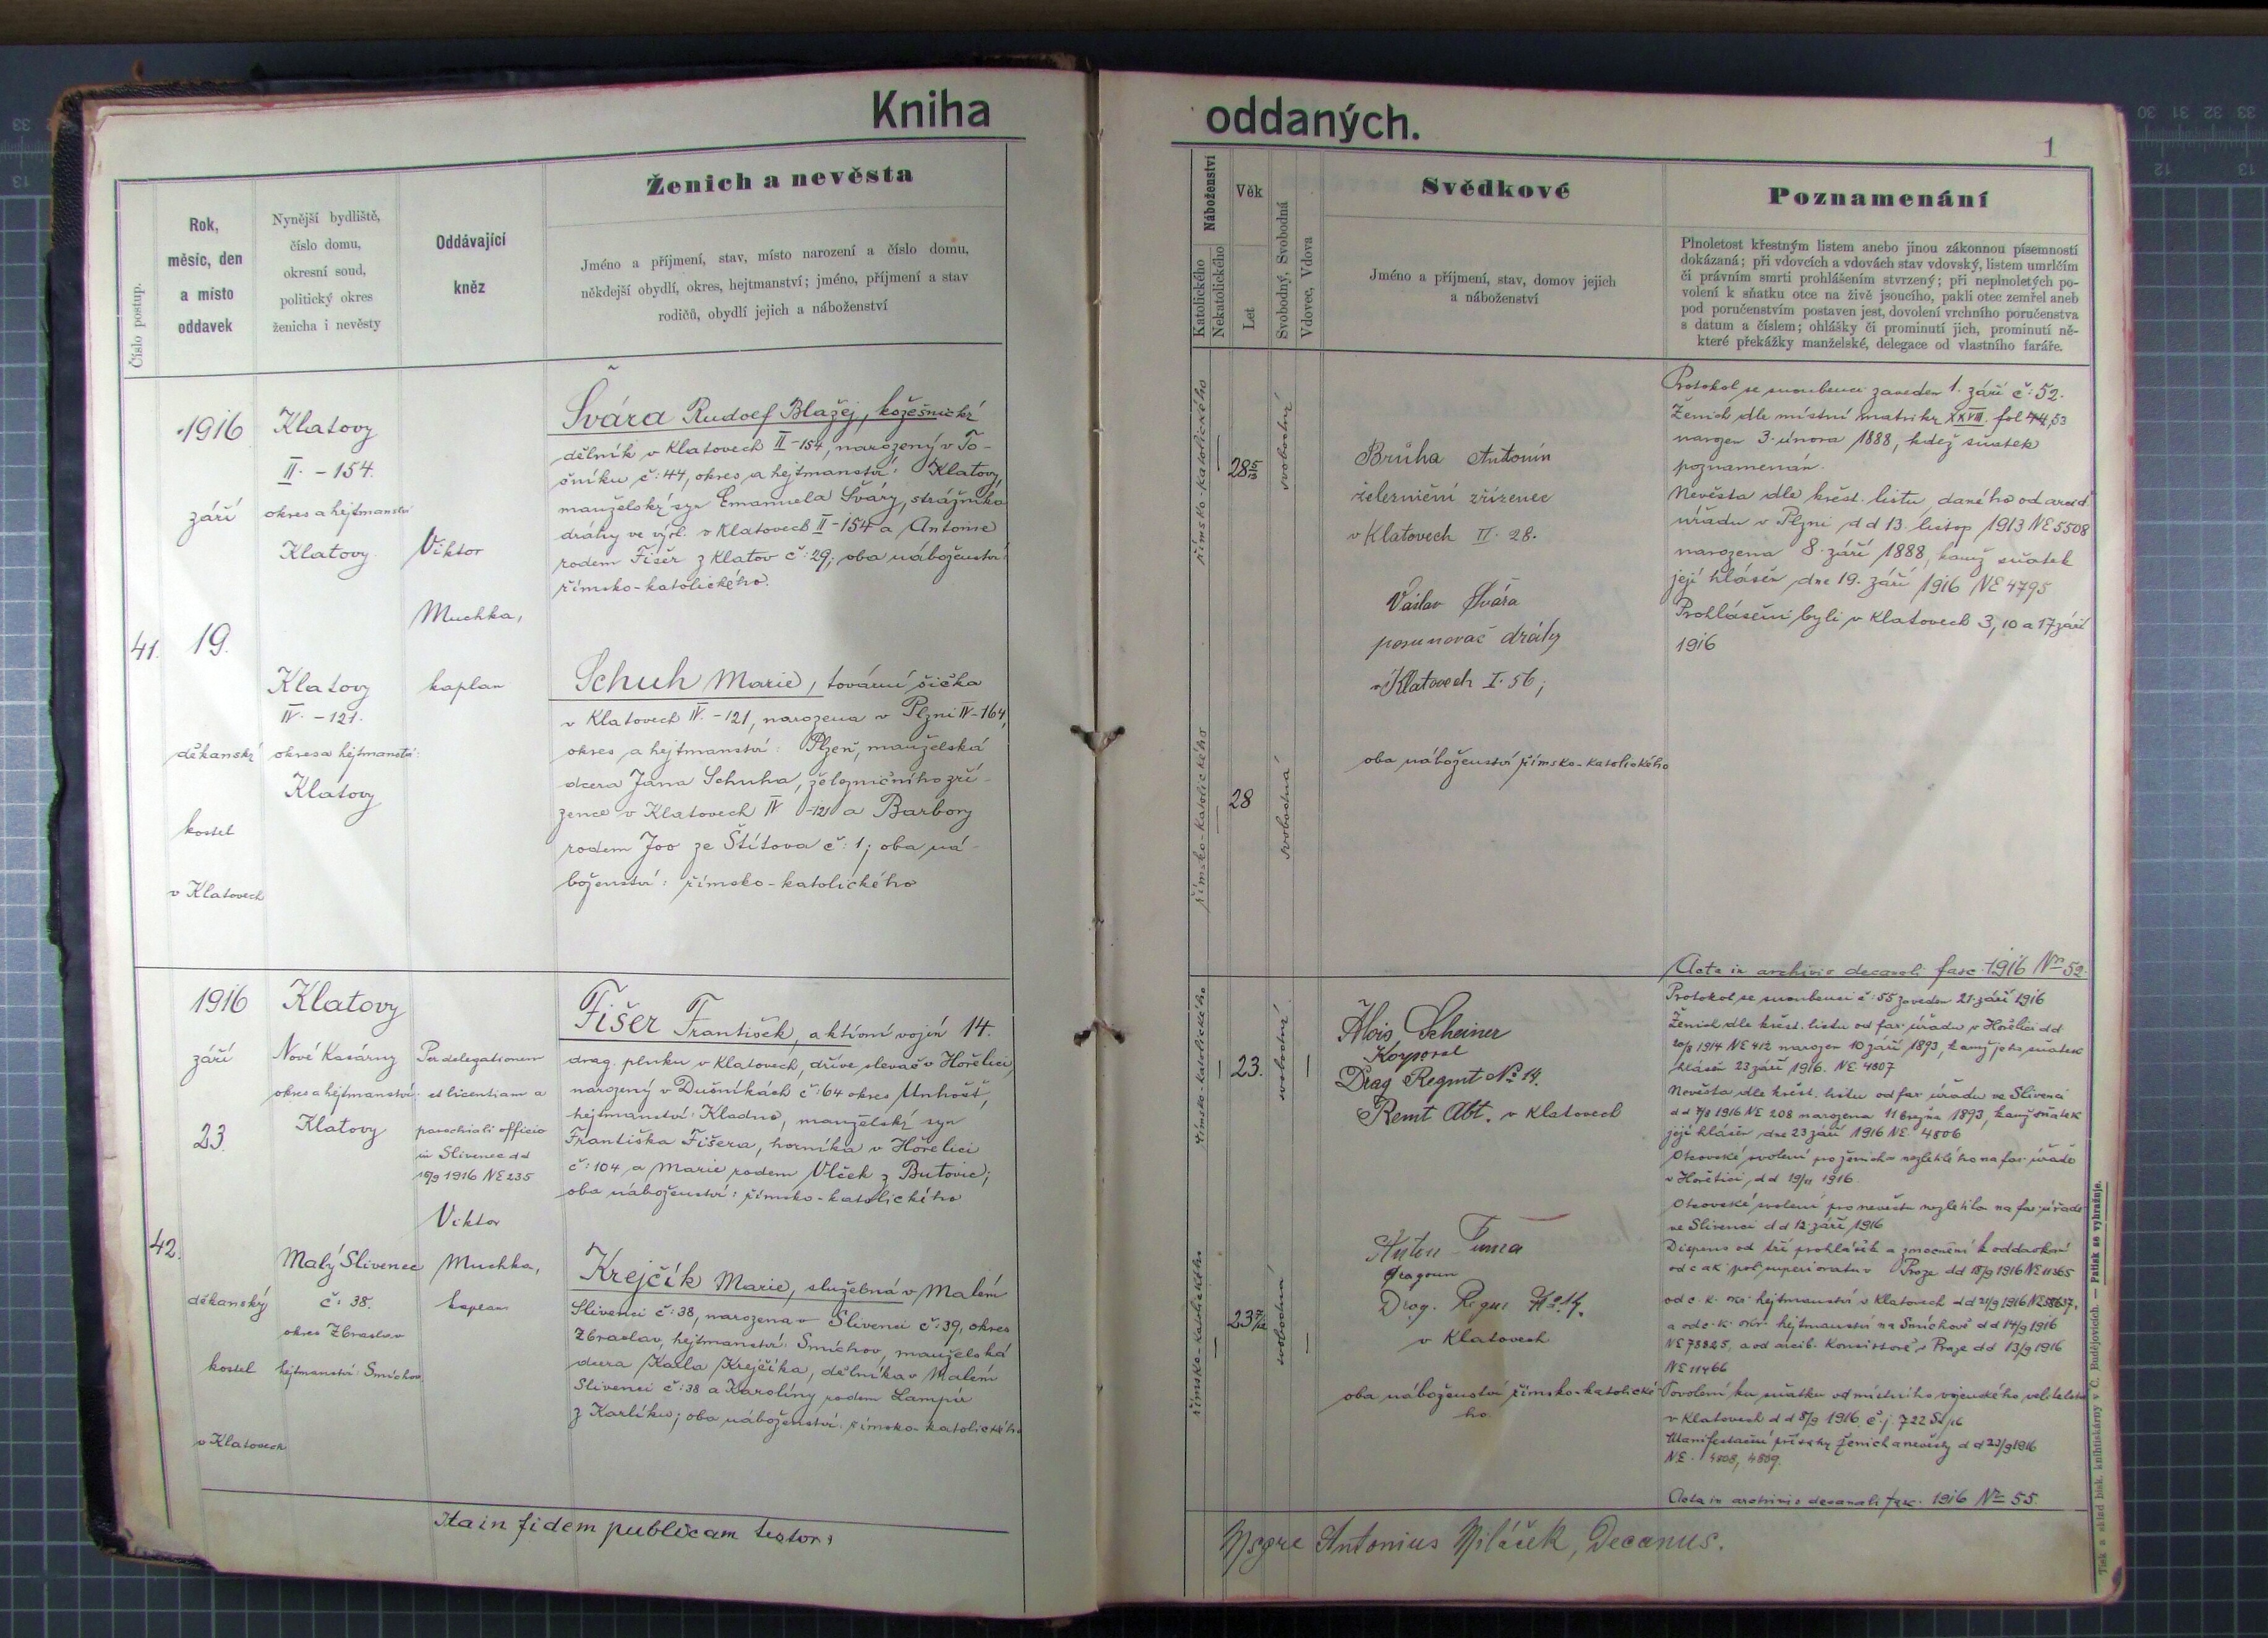 Kniha oddaných.
1
Číslo postup.
Rok,
měsíc, den
a místo
oddavek
Nynější bydliště,
číslo domu,
okresní soud,
politický okres
ženicha i nevěsty
Oddávající
kněz
Ženich a nevěsta
Jméno a příjmení, stav, místo narození a číslo domu,
někdejší obydlí, okres, hejtmanství; jméno, příjmení a stav
rodičů, obydlí jejich a náboženství
Náboženství
Katolického
Nekatolického
Věk
Let
Svobodný, Svobodná
Vdovec, Vdova
Svědkové
Jméno a příjmení, stav, domov jejich
a náboženství
Poznamenání
Plnoletost křestným listem anebo jinou zákonnou písemností
dokázaná; při vdovcích a vdovách stav vdovský, listem umrlčím
či právním smrti prohlášením stvrzený; při neplnoletých po-
volení k sňatku otce na živě jsoucího, pakli otec zemřel aneb
pod poručenstvím postaven jest, dovolení vrchního poručenstva
s datum a číslem; ohlášky či prominutí jich, prominutí ně-
které překážky manželské, delegace od vlastního faráře.
41.
1916
září
19.
děkanský
kostel
v Klatovech
Klatovy
II. - 154.
okres a hejtmanství
Klatovy
Klatovy
IV. - 121.
okres a hejtmanství:
Klatovy
Viktor
Muchka,
kaplan
Švára Rudolf Blažej, kožešnický
dělník v Klatovech II-154, narozený v To-
šníku č: 44, okres a hejtmanství: Klatovy,
manželský syn Emanuela Šváry, strážníka
dráhy ve výsl. v Klatovech II-154 a Antonie
rodem Fišer z Klatov č: 29; oba náboženství:
římsko-katolického.
Schuh Marie, tovární šička
v Klatovech IV. - 121, narozena v Plzni IV-164,
okres a hejtmanství: Plzeň, manželská
dcera Jana Schuha, železničního zří-
zence v Klatovech IV -121 a Barbory
rodem Joo ze Štítova č: 1; oba ná-
boženství: římsko-katolického
římsko-katolického
28
svobodný
římsko-katolického
28
svobodná
Brůha Antonín
železniční zřízenec
v Klatovech II. 28.
Václav Švára
posunovač dráhy
v Klatovech I. 56;
oba náboženství římsko-katolického
Protokol se snoubenci zaveden 1. září č: 52.
Ženich dle místní matriky XXVIII. fol 53
narozen 3. února 1888, kdež sňatek
poznamenán.
Nevěsta dle křest. listu, daného od arcid.
úřadu v Plzni d d 13. listop 1913 NE 5508
narozena 8. září 1888, kamž sňatek
její hlášen dne 19. září 1916 NE 4795
Prohlášeni byli v Klatovech 3, 10 a 17 září
1916
Acta in archivio decanali fasc. 1916 Nro 52.
42.
1916
září
23.
děkanský
kostel
v Klatovech
Klatovy
Nové Kasárny
okres a hejtmanství:
Klatovy
Malý Slivenec
č: 38.
okres Zbraslav
hejtmanství: Smíchov
Per delegationem
et licentiam a
parochiali officio
in Slivenec d d
1916 NE 235
Viktor
Muchka,
kaplan
Fišer František, aktivní vojín 14.
drag. pluku v Klatovech, dříve slevač v Hořelici,
narozený v Dušníkách č: 64 okres Unhošť,
hejtmanství: Kladno, manželský syn
Františka Fišera, horníka v Hořelici
č: 104 a Marie rodem Vlček z Butovic;
oba náboženství: římsko-katolického
Krejčík Marie, služebná v Malém
Slivenci č: 38, narozena v Slivenci č: 39, okres
Zbraslav, hejtmanství: Smíchov, manželská
dcera Karla Krejčíka, dělníka v Malém
Slivenci č: 38 a Karolíny rodem Lampír
z Karlíku; oba náboženství: římsko-katolického
římsko-katolického
23.
svobodný
římsko-katolického
23
svobodná
Alois Scheiner
Korporal
Drag Regmt No 14.
Remt Abt. v Klatovech
Anton Tuma
Dragoun
Drag. Regm No 14.
v Klatovech
oba náboženství římsko-katolické-
ho.
Protokol se snoubenci č: 55 zaveden 21. září 1916
Ženich dle křest. listu od far. úřadu v Hořelici d d
1914 NE 412 narozen 10 září 1893, kamž jeho sňatek
hlášen 23 září 1916. NE 4807
Nevěsta dle křest. listu od far. úřadu ve Slivenci
d d 1916 NE 208 narozena 11 1893, kamž sňatek
její hlášen dne 23 září 1916 NE 4806
Otcovské svolení pro ženicha nezletilého na far. úřadě
v Hořelici, d d 1916.
Otcovské svolení pro nevěstu nezletilou na far. úřadě
ve Slivenci d d 12. září 1916
Dispens od tří prohlášek a zmocnění k oddavkám
od c a k pol. superiorátu v Praze dd 18/9 1916 NE 11365
od c. k. okr. hejtmanství v Klatovech d d 21/9 1916 NE
a od c. k. okr. hejtmanství na Smíchově d d 14/9 1916
NE a od arcib. Konsistoře v Praze dd 13/9 1916
NE 11466
Povolení ku sňatku od místního vojenského velitelství
v Klatovech d d 8/9 1916. č. j. 722
Manifestační přísahy ženich a nevěsty d d 23/9 1916
NE. 4808, 4809.
Acta in archivio decanali fasc. 1916 Nro 55.
Ita in fidem publicam testor:
Msgre Antonius Miláček, Decanus.
Tisk a sklad bisk. knihtiskárny v Č. Budějovicích. — Patisk se vyhražuje.